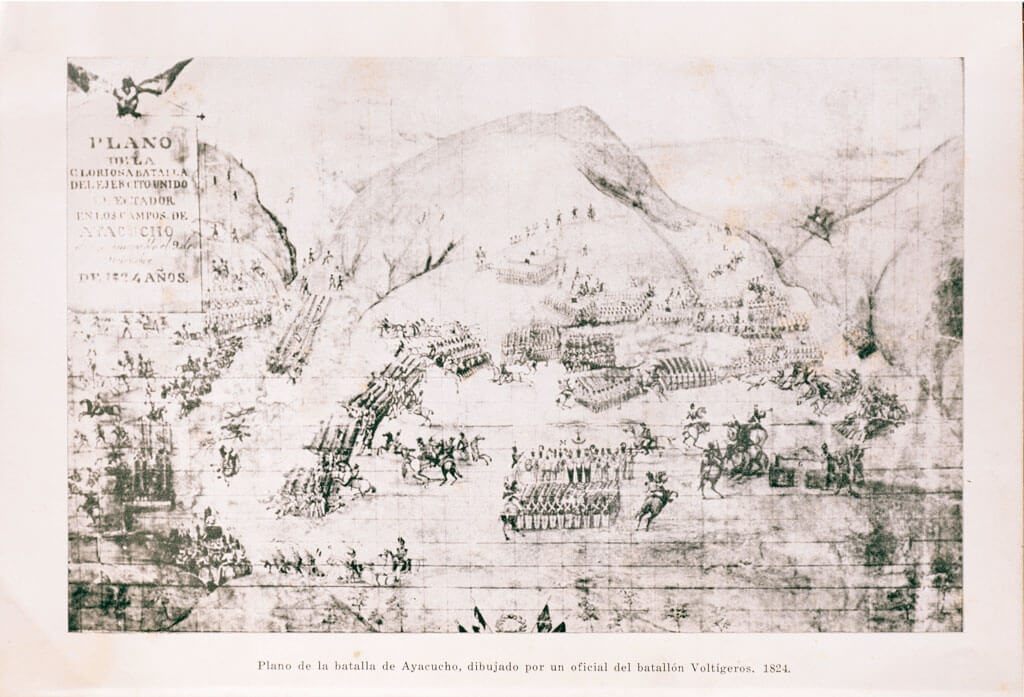 PLANO
DE LA
GLORIOSA BATALLA
DEL EJERCITO UNIDO
EN LOS CAMPOS DE
AYACUCHO
el 9 de
DE 1824 AÑOS.
Plano de la batalla de Ayacucho, dibujado por un oficial del batallón Voltígeros. 1824.